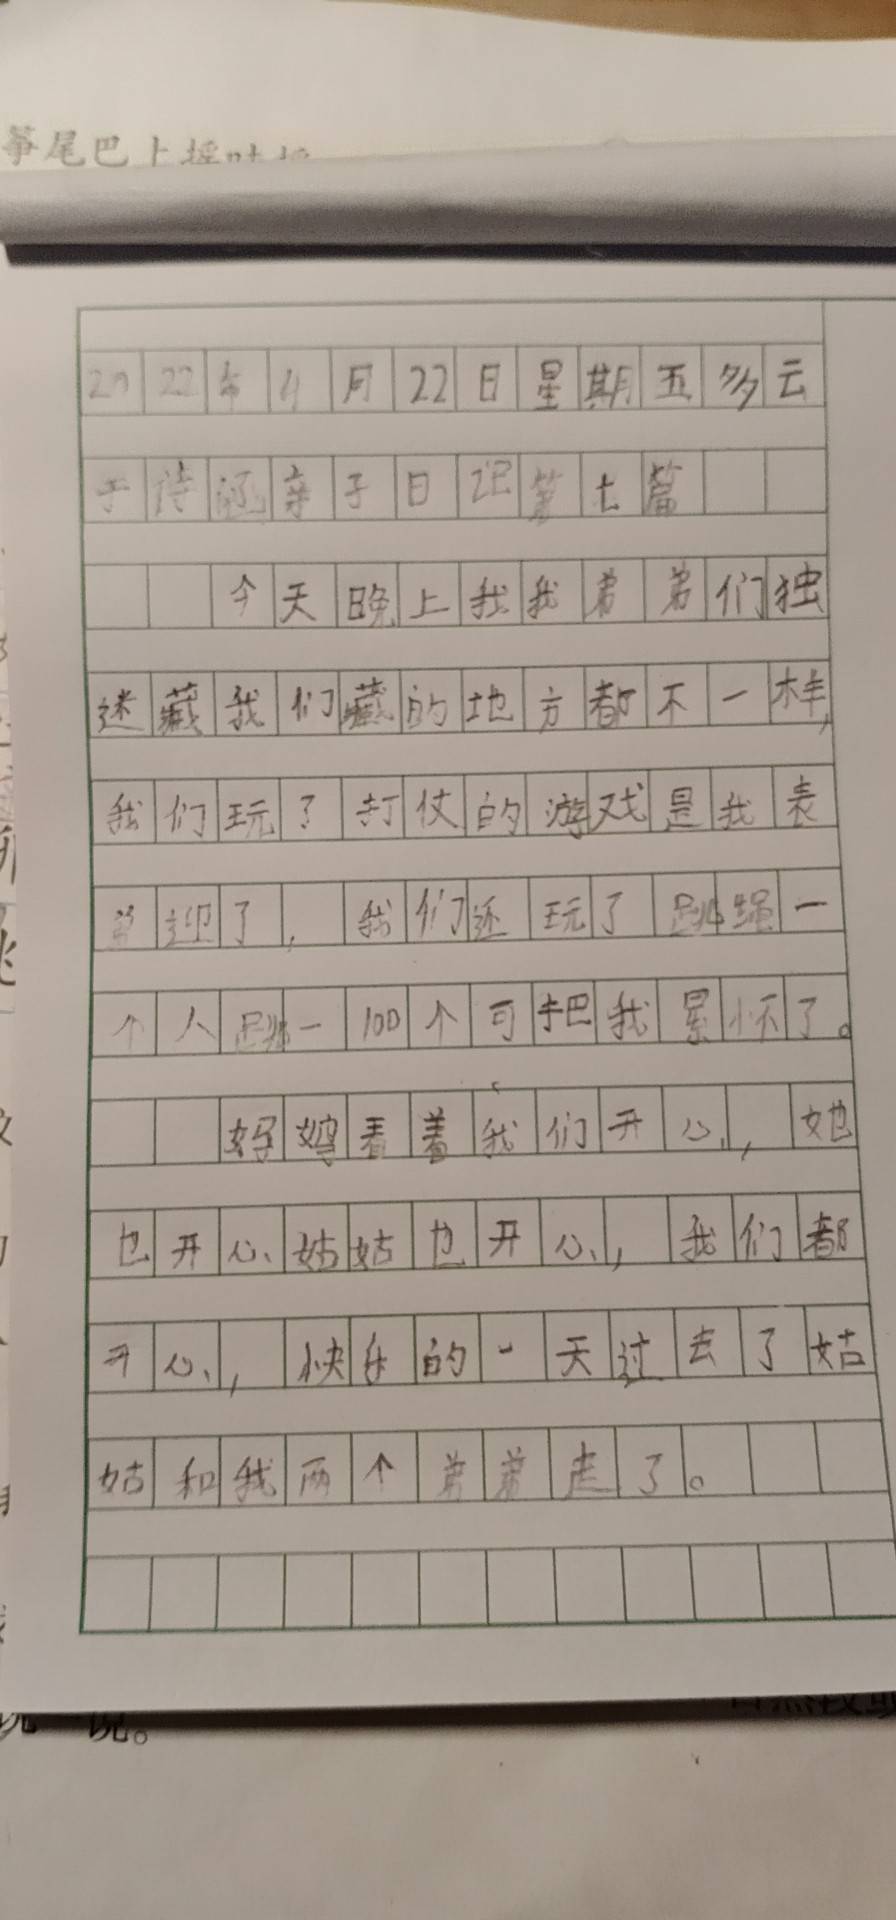 筝尾巴上摇
2022年4月22日星期五多云
于诗涵亲子日记第七篇
今天晚上我我弟弟们独
迷藏我们藏的地方都不一样,
我们玩了打仗的游戏是我表
弟迎了,我们还玩了跳绳一
个人跳一100个可把我累怀了。
好婷看着我们开心,她
也开心姑姑也开心,我们都
开心,快乐的一天过去了姑
姑和我两个弟弟走了。
说一说。